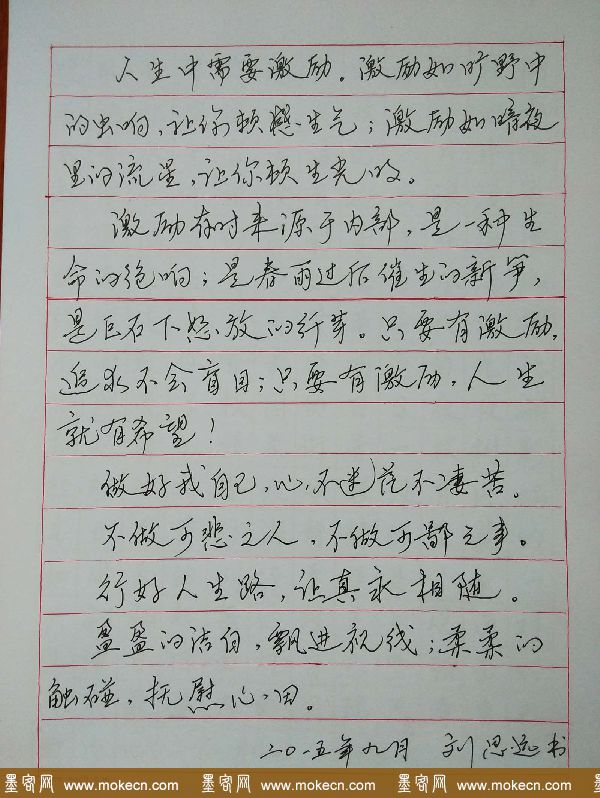 人生中需要激励。激励如旷野中
的虫响，让你顿憾生气；激励如暗夜
里的流星，让你顿生光明。
激励有时来源于内部，是一种生
命的绝响；是春雨过后催生的新笋，
是巨石下怒放的纤芽。只要有激励，
追求不会盲目；只要有激励，人生
就有希望！
做好我自己，心不迷茫不凄苦。
不做可悲之人，不做可鄙之事。
行好人生路，让真永相随。
盈盈的洁白，飘进视线；柔柔的
触碰，抚慰心田。
二〇一五年九月 刘思远书
墨客网 www.mokecn.com 墨客网 www.mokecn.com 墨客网 www.mokecn.com